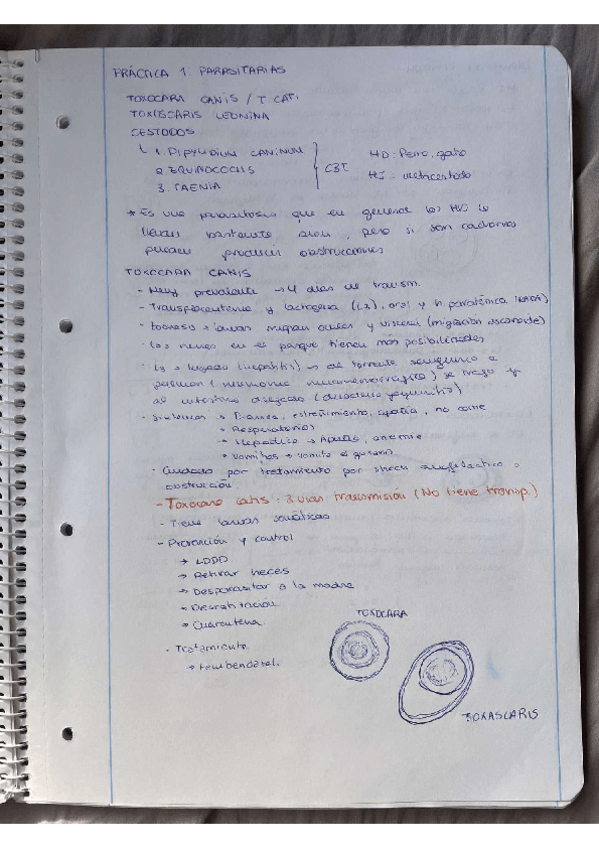 PRÁCTICA 1: PARASITARIAS
TOXOCARA CANIS / T CATI
TOXISCARIS LEONINA
CESTODOS
1. DIPYLIDIUM CANINUM
2. EQUINOCOCUS
3. TAENIA
CBI
HD: Perro, gato
HI: metacestodo
* Es una parasitosis que en general los HD lo
llevan bastante bien, pero si son cachorros
pueden producir obstrucciones
TOXOCARA CANIS
- Muy prevalente → 4 vías de transm.
- Transplacentaria y lactogena (L3), oral y h. paraténica
- toxocara → larvas migran ocular y visceral (migración ascendente)
- los nenes en el parque tienen más posibilidades
- L3 → hígado (hepatitis) → de torrente sanguíneo a
pulmón (neumonía neumohemorrágica) se traga y
al intestino delgado (duodeno yeyunitis)
- Síntomas → Diarrea, estreñimiento, apatía, no come
→ Respiratorios
→ Hepático → Apatía, anemia
→ Vómitos → vomita el gusano
- Cuidado por tratamiento por shock anafiláctico o
obstrucción
- Toxocara catis: 3 vías trasmisión (No tiene transp.)
- Tiene larvas somáticas
- Prevención y control
→ LDDD
→ Retirar heces
→ Desparasitar a la madre
→ Desratización
→ Cuarentena
- Tratamiento
→ Fembendazol.
TOXOCARA
TOXASCARIS